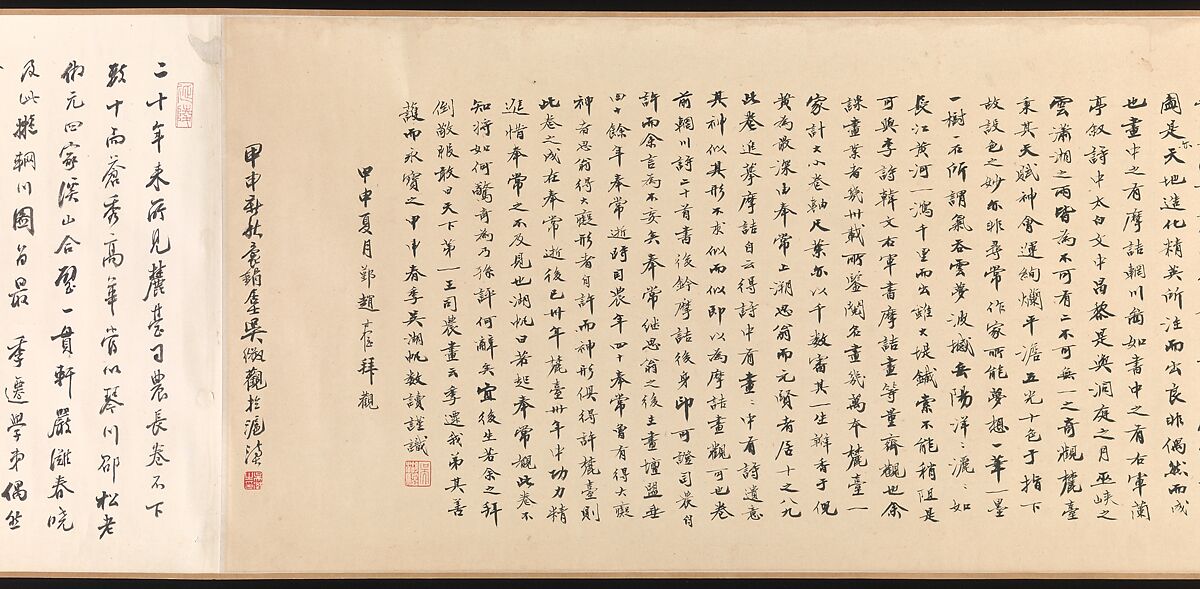 圖是天地造化精英所注而出良非偶然而成
也畫中之有摩詰輞川圖如書中之有右軍蘭
亭叙詩中太白文中昌黎是與洞庭之月巫峽之
雲瀟湘之雨皆為不可有二不可無一之奇觀麓臺
秉其天賦神會運絢爛平澹五光十色于指下
故設色之妙亦非尋常作家所能夢想一筆一墨
一樹一石所謂氣吞雲夢波撼岳陽洋洋灑灑如
長江黃河一瀉千里而出雖大堤鐵索不能稍阻是
可與李詩韓文右軍書摩詰畫等量齊觀也余
課畫業者幾卅載所鑒閱名畫幾萬本麓臺一
家計大小卷軸尺葉亦以千數審其一生瓣香于倪
黃為最深由奉常上溯思翁而元賢者居十之八九
此卷追摹摩詰自云得詩中有畫畫中有詩遺意
其神似其形不求似而似即以為摩詰畫觀可也卷
前輞川詩二十首書後鈐摩詰後身印可證司農自
許而余言為不妄矣奉常繼思翁之後主畫壇盟垂
四十餘年奉常逝時司農年四十奉常曾有得大癡
神者思翁得大癡形者自許而神形俱得許麓臺則
此卷之成在奉常逝後已卅年麓臺卅年中功力精
進惜奉常之不及見也湖帆曰若起奉常觀此卷不
知將如何驚奇為乃孫評何解矣宜後生若余之拜
倒敬張敢曰天下第一王司農畫云季遷我弟其善
護而永寶之甲申春季吳湖帆數讀謹識
甲申夏月鄞趙  拜觀
甲申新秋 吳徵觀於滬瀆
二十年來所見麓臺司農長卷不下
數十而蒼秀高華當以琴川邵松老
仿元四家溪山合璧一貫軒嚴灘春曉
及此擬輞川圖為最 季遷學弟偶然